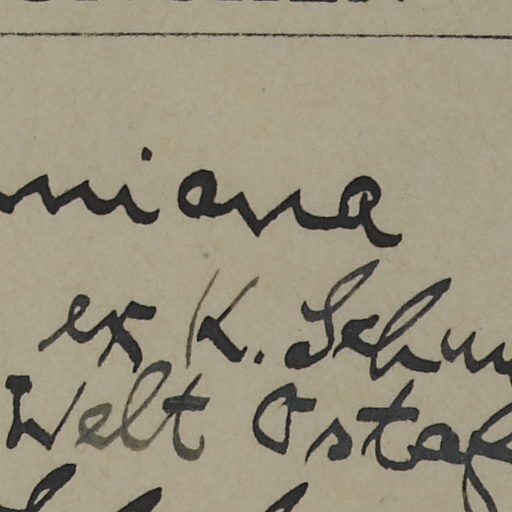 niana
ex K. Schu
Welt Ostaf